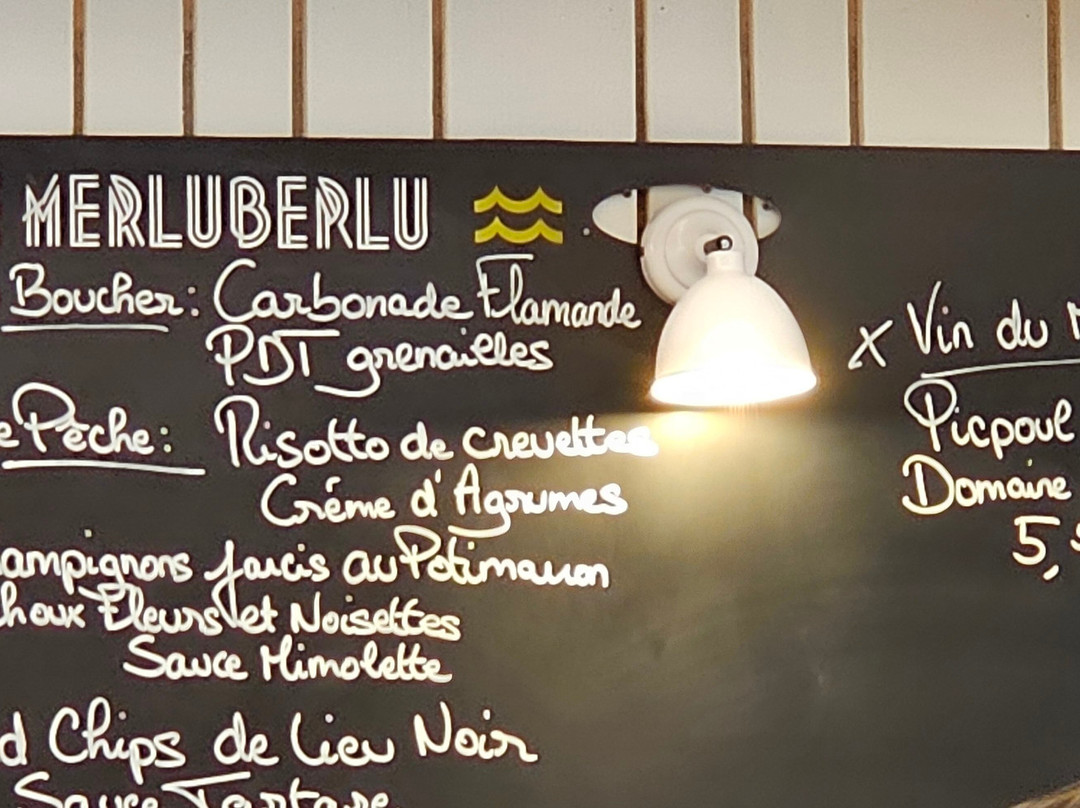 MERLUBERLU
Boucher: Carbonade Flamande
PDT grenailles
Pêche: Risotto de crevettes
Créme d'Agrumes
ampignons farcis au Potimarron
houx Fleurs et Noisettes
Sauce Mimolette
d Chips de Lieu Noir
Sauce Tartare
x Vin du
Picpoul
Domaine
5,